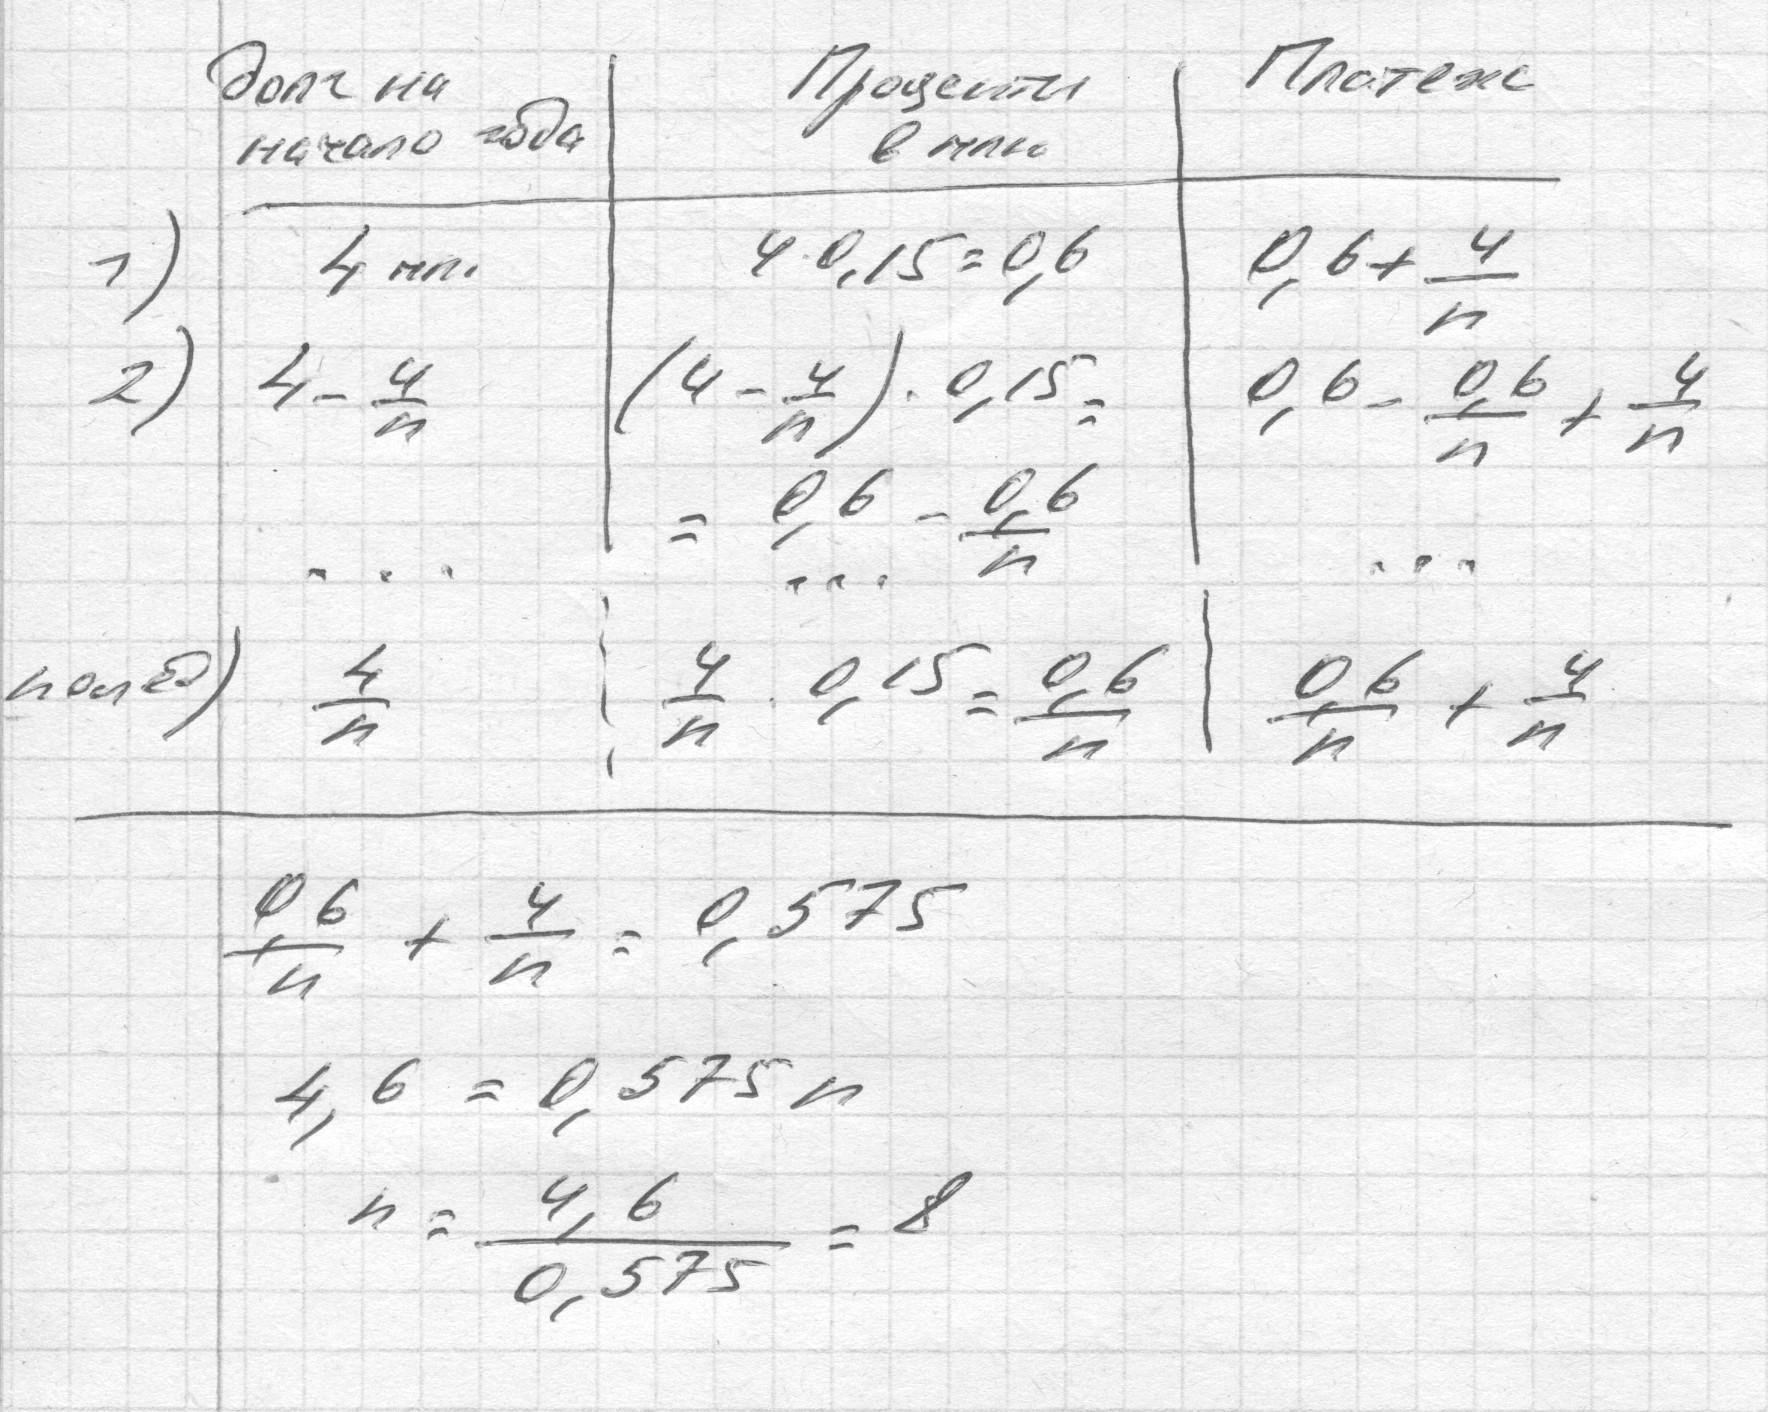 Долг на начало года Проценты в млн. Платеж
1) 4 мл. 4·0,15=0,6 0,6+4/n
2) 4-4/n (4-4/n)·0,15= 0,6-0,6/n+4/n
=0,6-0,6/n
... ... ...
4/n 4/n·0,15=0,6/n 0,6/n+4/n
0,6/n+4/n=0,575
4,6=0,575n
n=4,6/0,575=8